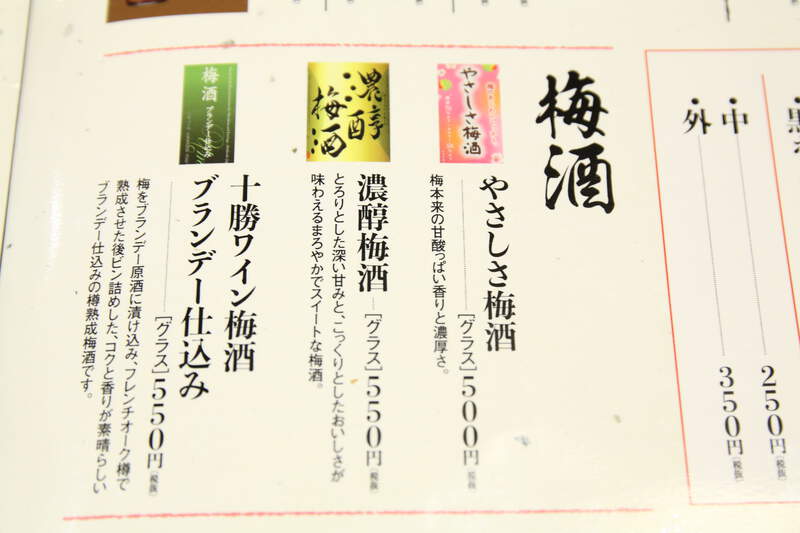 中
250円
[税抜]
外
350円
[税抜]
梅酒
やさしさ梅酒
やさしさ梅酒
[グラス]500円
[税抜]
梅本来の甘酸っぱい香りと濃厚さ。
濃醇
梅酒
濃醇梅酒
[グラス]550円
[税抜]
とろりとした深い甘みと、こっくりとしたおいしさが
味わえるまろやかでスイートな梅酒。
梅酒
ブランデー仕込み
十勝ワイン梅酒
ブランデー仕込み
[グラス]550円
[税抜]
梅をブランデー原酒に漬け込み、フレンチオーク樽で
熟成させた後ビン詰めした、コクと香りが素晴らしい
ブランデー仕込みの樽熟成梅酒です。